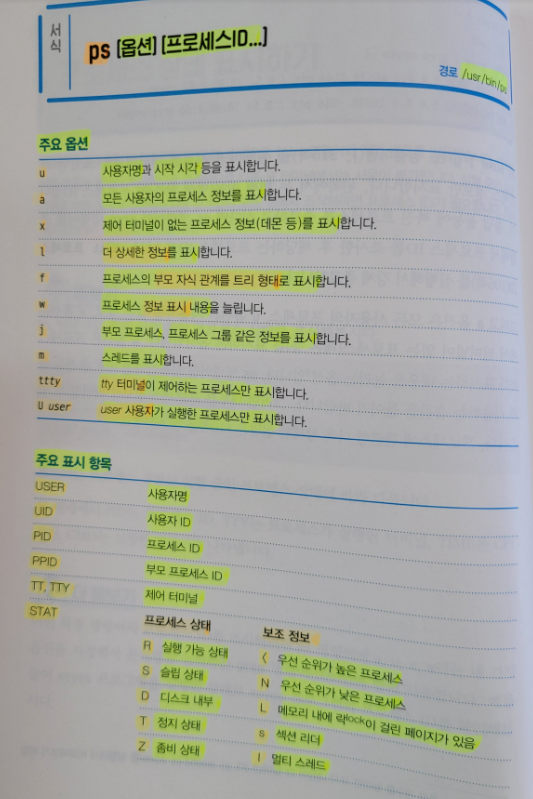 서식
ps [옵션] [프로세스ID...]
경로 /usr/bin/ps
주요 옵션
u 사용자명과 시작 시각 등을 표시합니다.
a 모든 사용자의 프로세스 정보를 표시합니다.
x 제어 터미널이 없는 프로세스 정보(데몬 등)를 표시합니다.
l 더 상세한 정보를 표시합니다.
f 프로세스의 부모 자식 관계를 트리 형태로 표시합니다.
w 프로세스 정보 표시 내용을 늘립니다.
j 부모 프로세스, 프로세스 그룹 같은 정보를 표시합니다.
m 스레드를 표시합니다.
ttty tty 터미널이 제어하는 프로세스만 표시합니다.
U user user 사용자가 실행한 프로세스만 표시합니다.
주요 표시 항목
USER 사용자명
UID 사용자 ID
PID 프로세스 ID
PPID 부모 프로세스 ID
TT, TTY 제어 터미널
STAT 프로세스 상태 보조 정보
R 실행 가능 상태 < 우선 순위가 높은 프로세스
S 슬립 상태 N 우선 순위가 낮은 프로세스
D 디스크 내부 L 메모리 내에 락lock이 걸린 페이지가 있음
T 정지 상태 s 섹션 리더
Z 좀비 상태 l 멀티 스레드